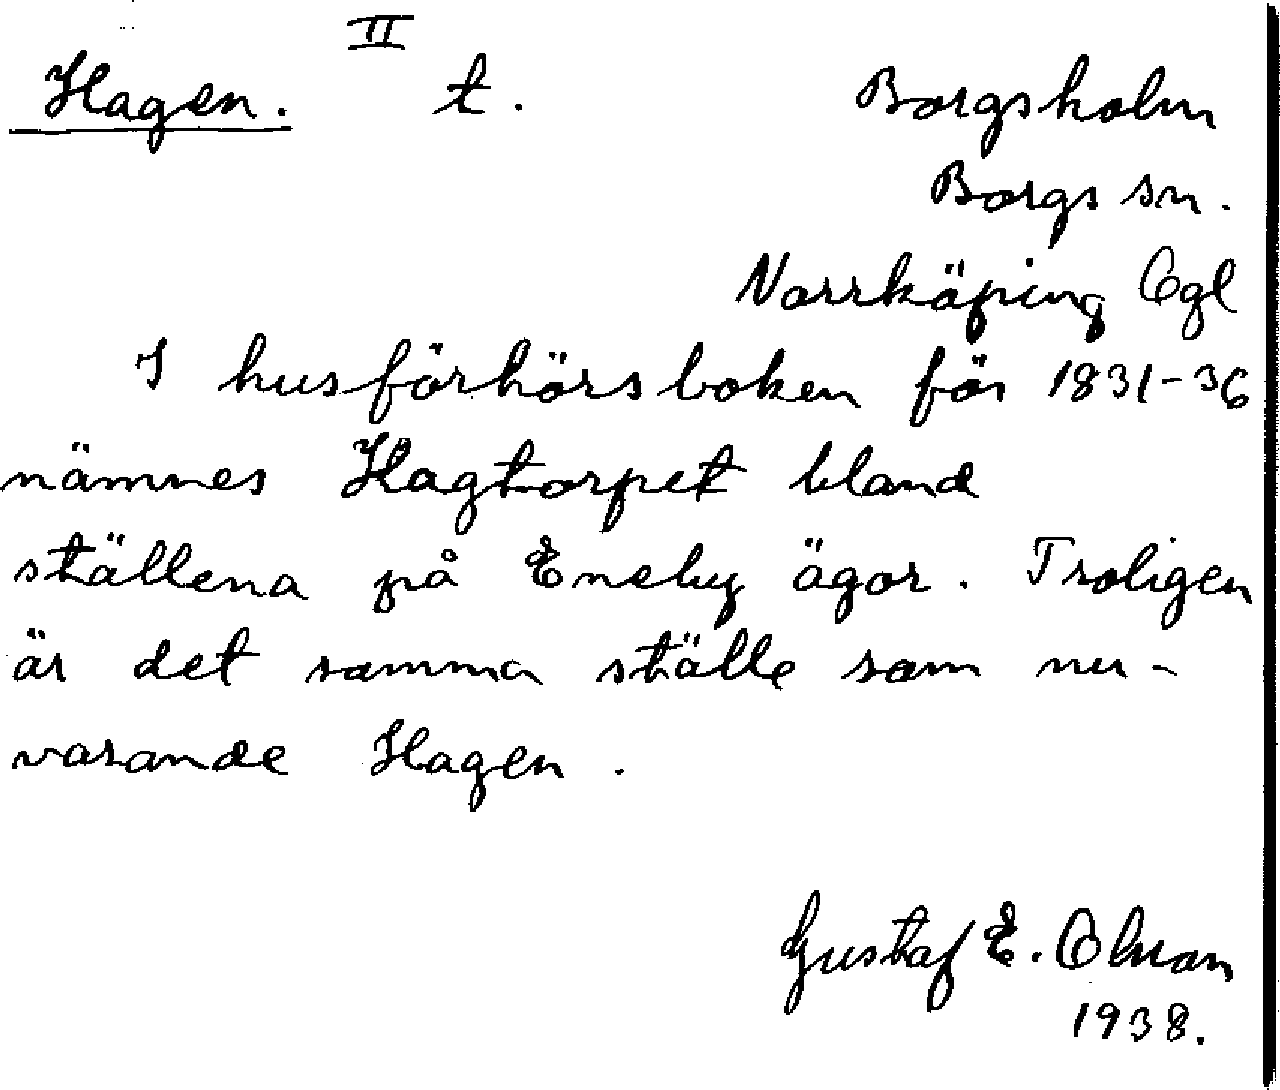 II
Hagen. t. Borgsholm
Borgs sn.
Norrköping Ögl
I husförhörsboken för 1831-36
nämnes Hagtorpet bland
ställena på Eneby ägor. Troligen
är det samma ställe som nu-
varande Hagen.
Gustaf E.
1938.